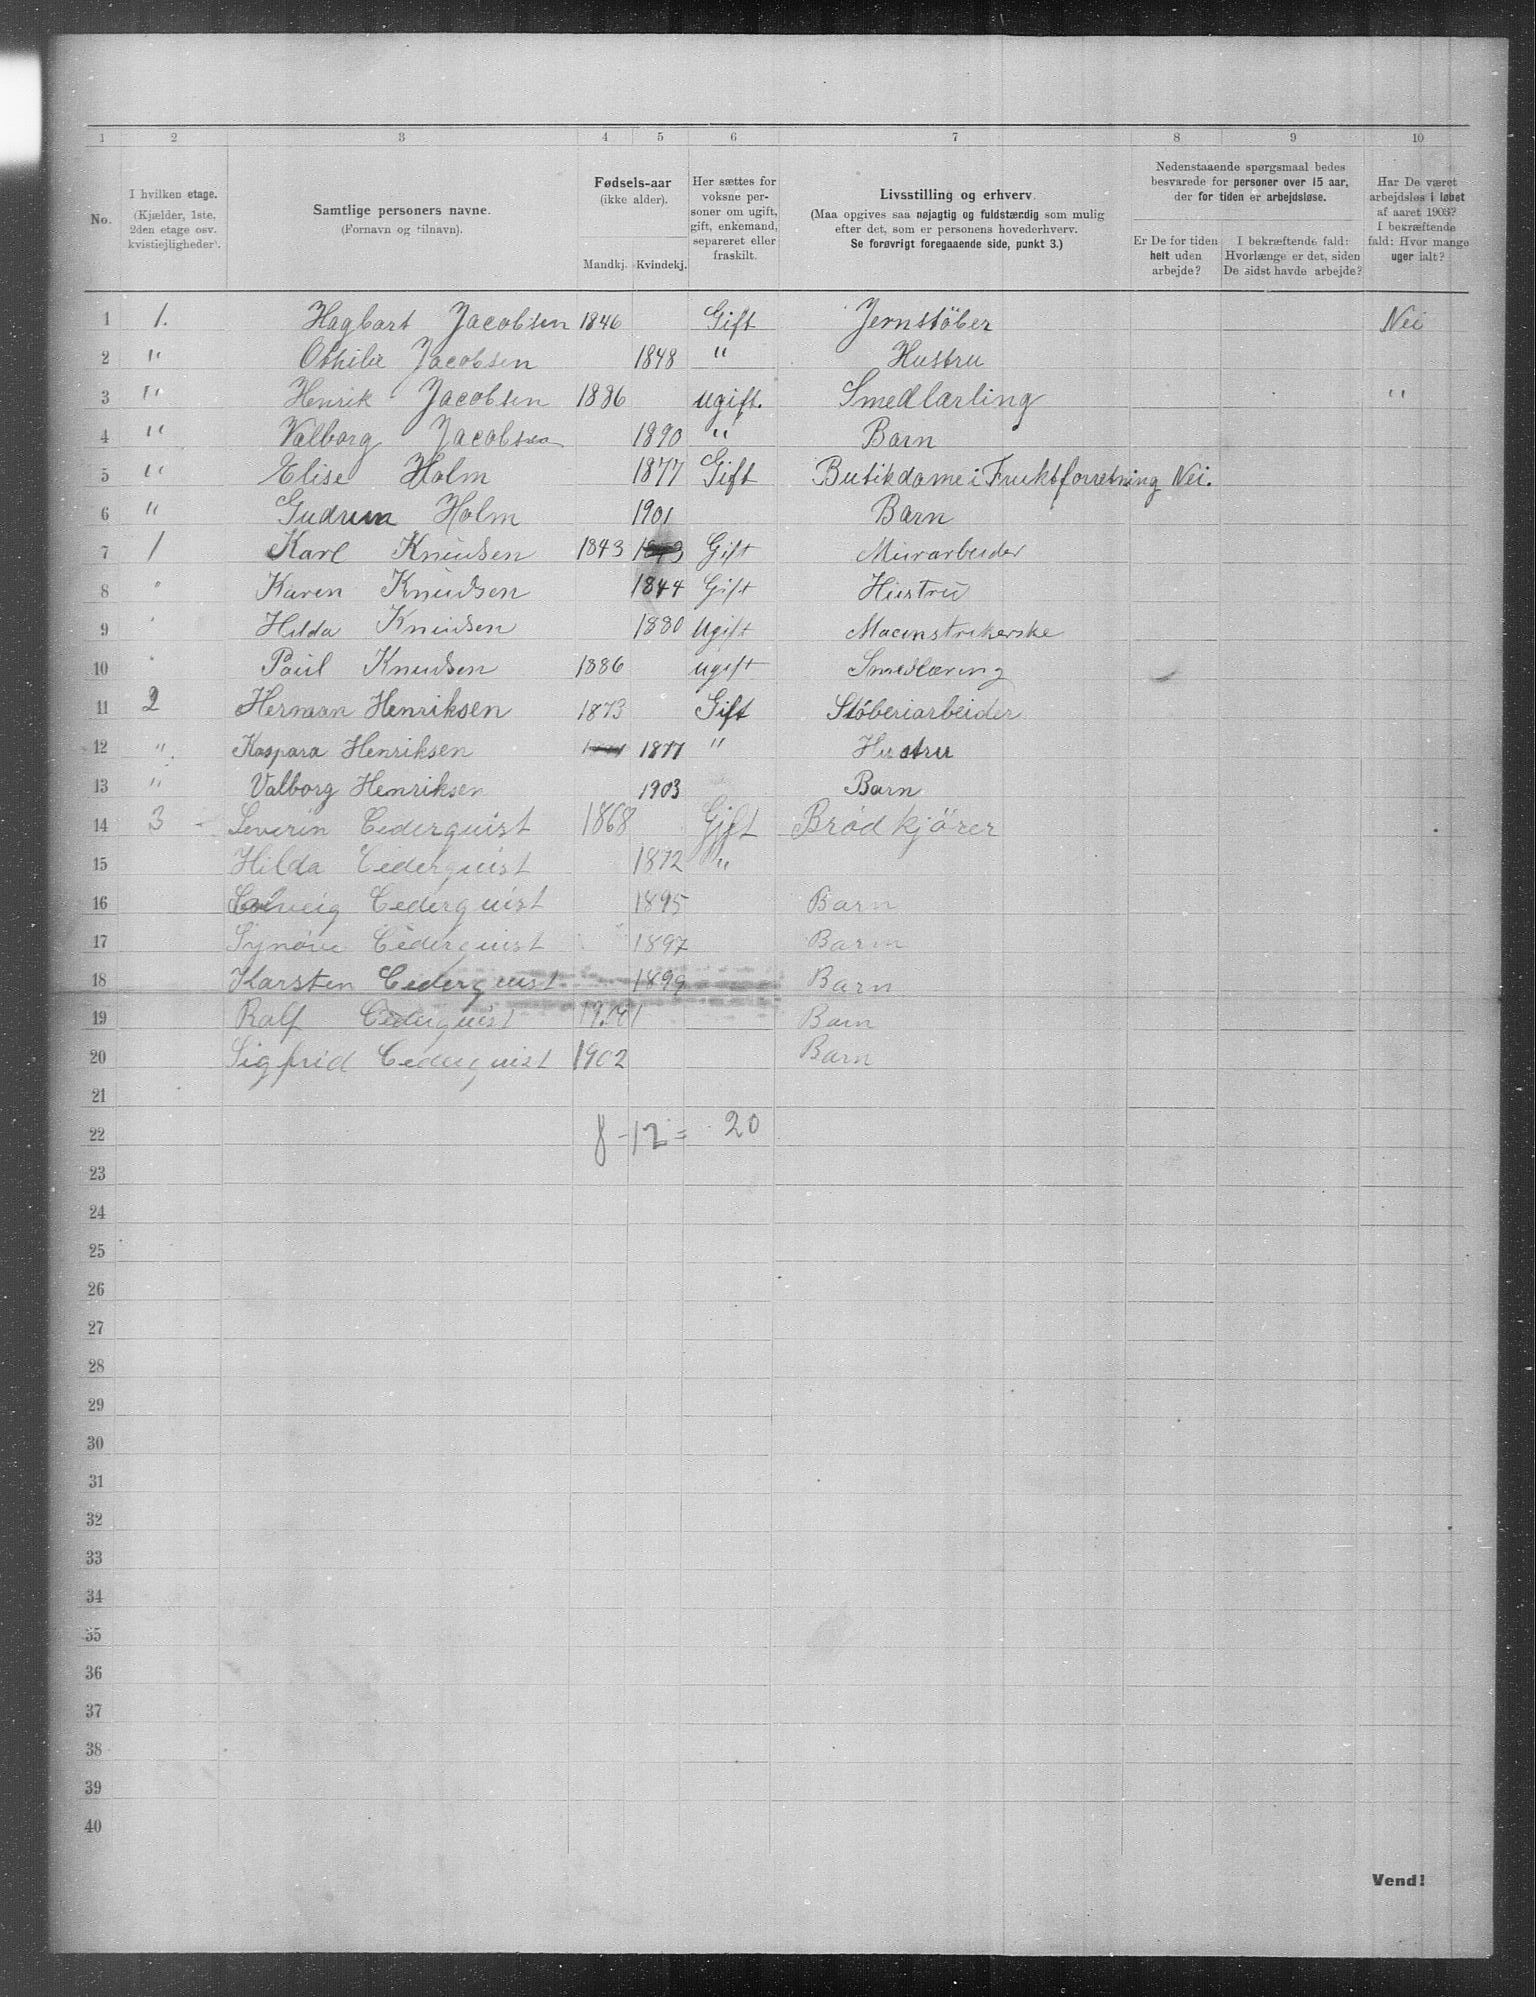 1 2 3 4 5 6 7 8 9 10
No.
I hvilken etage.
(Kjælder, 1ste, 2den etage osv. kvistlejligheder).
Samtlige personers navne.
(Fornavn og tilnavn).
Fødsels-aar
(ikke alder).
Mandkj. Kvindekj.
Her sættes for voksne personer om ugift, gift, enkemand, separeret eller fraskilt.
Livsstilling og erhverv.
(Maa opgives saa nøjagtig og fuldstærdig som mulig efter det, som er personens hovederhverv.
Se forøvrigt foregaaende side, punkt 3.)
Nedenstaaende spørgsmaal bedes besvarede for personer over 15 aar, der for tiden er arbejdsløse.
Er De for tiden helt uden arbejde?
I bekræftende fald: Hvorlænge er det, siden De sidst havde arbejde?
Har De været arbejdsløs i løbet af aaret 1903? I bekræftende fald: Hvor mange uger ialt?
1 1. Hagbart Jacobsen 1846 Gift Jernstöber Nei
2 " Othilie Jacobsen 1848 " Hustru
3 " Henrik Jacobsen 1886 ugift. Smedlærling "
4 " Valborg Jacobsen 1890 " Barn
5 " Elise Holm 1877 Gift Butikdame i Fruktforretning Nei.
6 " Gudrun Holm 1901 Barn
7 1 Karl Knudsen 1843 Gift Murarbeider
8 " Karen Knudsen 1844 Gift Hustru
9 Hilda Knudsen 1880 Ugift Macinstrikerske
10 Paul Knudsen 1886 ugift Smedlæring
11 2 Herman Henriksen 1873 Gift Støberiarbeider
12 " Kaspara Henriksen 1877 " Hustru
13 " Valborg Henriksen 1903 Barn
14 3 - Severin Cederquist 1868 Gift Brödkjörer
15 Hilda Cederquist 1872 "
16 Solveig Cederquist 1895 Barn
17 Synøve Cederquist 1897 Barn
18 Karsten Cederquist 1899 Barn
19 Ralf Cederquist Barn
20 Sigfrid Cederquist 1902 Barn
21
22 8 - 12 = 20
23
24
25
26
27
28
29
30
31
32
33
34
35
36
37
38
39
40
Vend!